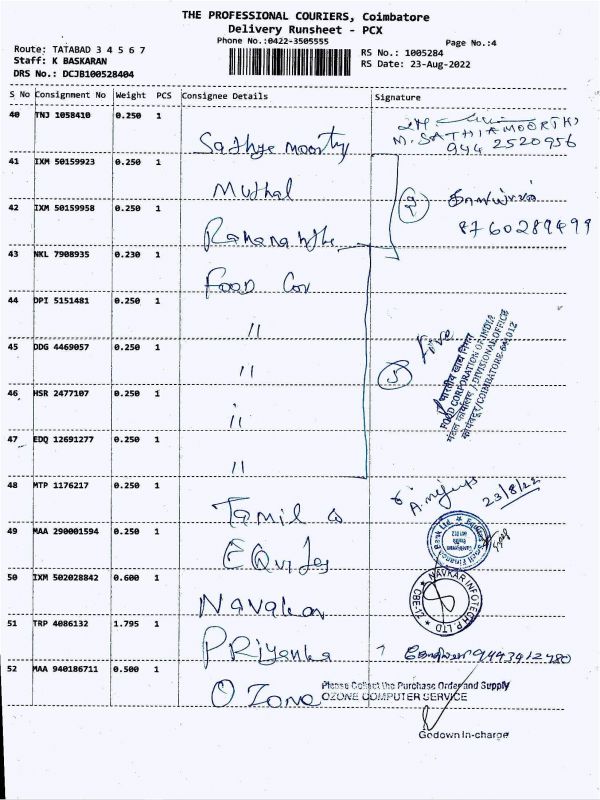 THE PROFESSIONAL COURIERS, Coimbatore
Delivery Runsheet - PCX
Phone No.:0422-3505555
Page No.:4
Route: TATABAD 3 4 5 6 7
RS No.: 1005284
Staff: K BASKARAN
RS Date: 23-Aug-2022
DRS No.: DCJB100528404
S No Consignment No Weight PCS Consignee Details Signature
40 TNJ 1058410 0.250 1
M. SATHIAMOORTHI
944 2520956
41 IXM 50159923 0.250 1
Muthal
42 IXM 50159958 0.250 1
8760289499
43 NKL 7908935 0.230 1
Food Cor
44 DPI 5151481 0.250 1
"
45 DDG 4469057 0.250 1
"
5 Five
भारतीय खाद्य निगम
FOOD CORPORATION OF INDIA
मंडल कार्यालय / DIVISIONAL OFFICE
कोयंबटूर/COIMBATORE-641012
46 HSR 2477107 0.250 1
"
47 EDQ 12691277 0.250 1
"
48 MTP 1176217 0.250 1
Tamil
23/8/22
49 MAA 290001594 0.250 1
50 IXM 502028842 0.600 1
NAVKAR INFOTECH P. LTD
CBE-12
51 TRP 4086132 1.795 1
PRiyanka
9443412480
52 MAA 940186711 0.500 1
OZone
Please Collect the Purchase Order and Supply
OZONE COMPUTER SERVICE
Godown In-charge